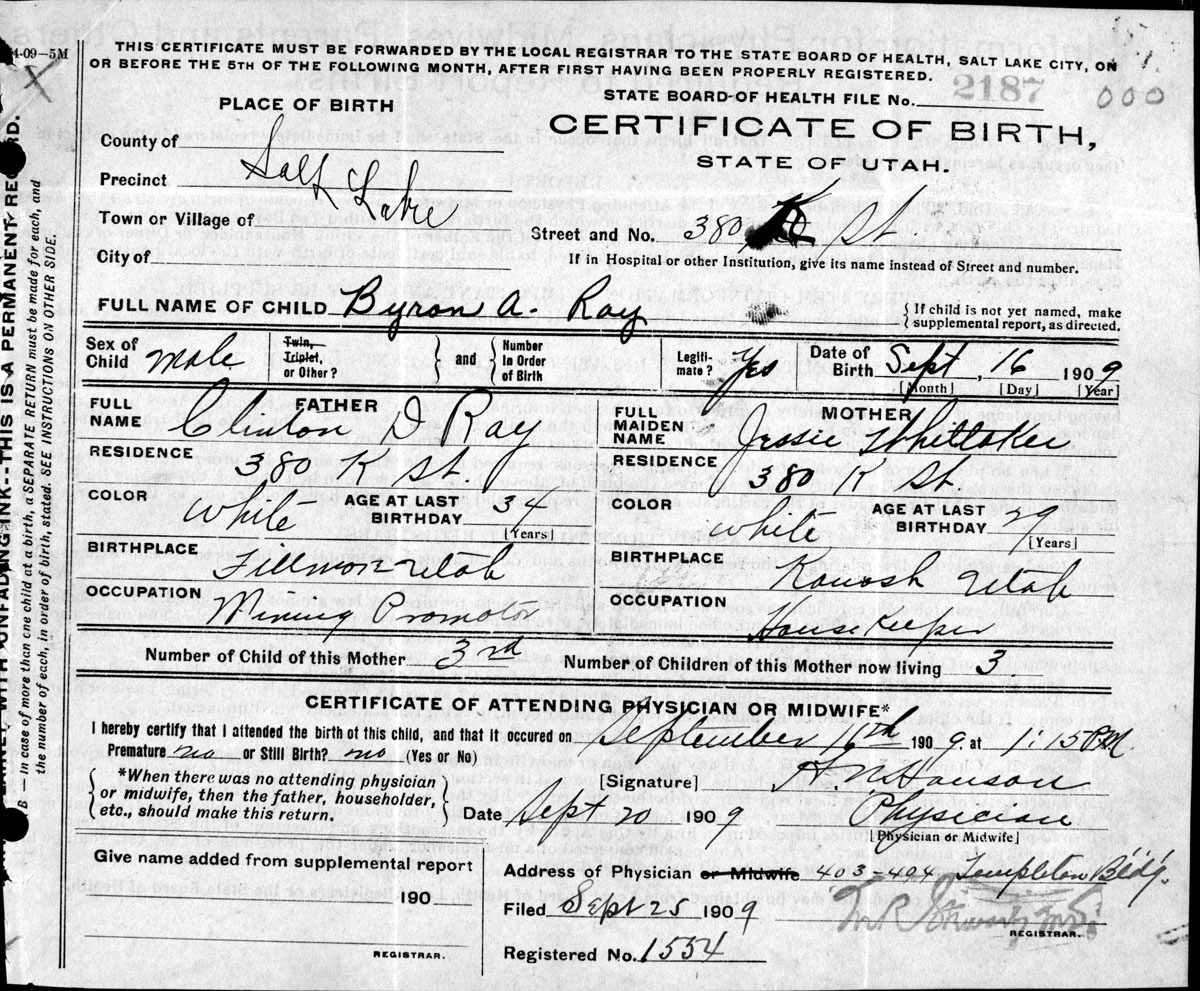 4-09-5M
THIS CERTIFICATE MUST BE FORWARDED BY THE LOCAL REGISTRAR TO THE STATE BOARD OF HEALTH, SALT LAKE CITY, ON
OR BEFORE THE 5TH OF THE FOLLOWING MONTH, AFTER FIRST HAVING BEEN PROPERLY REGISTERED.
PLACE OF BIRTH
STATE BOARD OF HEALTH FILE No. 2187 000
CERTIFICATE OF BIRTH,
STATE OF UTAH.
County of
Precinct Salt Lake
Town or Village of
Street and No. 380 K St
City of
If in Hospital or other Institution, give its name instead of Street and number.
FULL NAME OF CHILD Byron A. Ray
{ If child is not yet named, make
supplemental report, as directed.
Sex of Child male
Twin, Triplet, or Other?
and
Number In Order of Birth
Legiti-mate? Yes
Date of Birth Sept, 16 1909
[Month] [Day] [Year]
FATHER
FULL NAME Clinton D Ray
RESIDENCE 380 K St.
COLOR White AGE AT LAST BIRTHDAY 34
[Years]
BIRTHPLACE Fillmore Utah
OCCUPATION Mining Promotor
MOTHER
FULL MAIDEN NAME Jessie Whittaker
RESIDENCE 380 K St
COLOR White AGE AT LAST BIRTHDAY 29
[Years]
BIRTHPLACE Kanosh Utah
OCCUPATION Housekeeper
Number of Child of this Mother 3rd Number of Children of this Mother now living 3
CERTIFICATE OF ATTENDING PHYSICIAN OR MIDWIFE*
I hereby certify that I attended the birth of this child, and that it occured on September 16th 1909. at 1:15 P.M.
Premature no or Still Birth? no (Yes or No)
*When there was no attending physician
or midwife, then the father, householder,
etc., should make this return.
[Signature] Hanson
Date Sept 20 1909 Physician
[Physician or Midwife]
Give name added from supplemental report
190
REGISTRAR.
Address of Physician or Midwife 403-404 Templeton Bldg.
Filed Sept 25 1909
REGISTRAR.
Registered No. 1554
B — In case of more than one child at a birth, a SEPARATE RETURN must be made for each, and
the number of each, in order of birth, stated. SEE INSTRUCTIONS ON OTHER SIDE.
WITH UNFADING INK--THIS IS A PERMANENT RE RD.